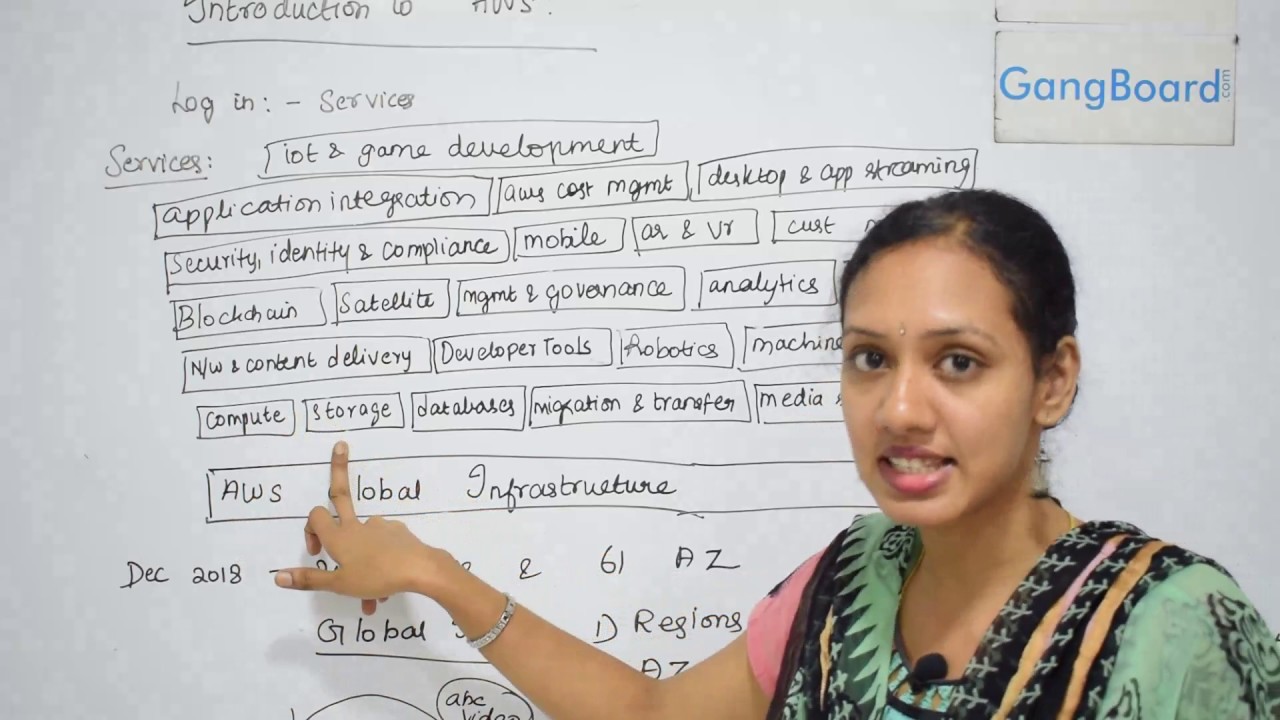 Introduction to AWS.
GangBoard.com
Log in: - Services
Services: iot & game development
application integration aws cost mgmt desktop & app streaming
Security, identity & compliance mobile ar & vr cust
Blockchain Satellite mgmt & governance analytics
N/w & content delivery Developer Tools Robotics machine
compute storage databases migration & transfer media
AWS Global Infrastructure
Dec 2018 - & 61 AZ
Global 1) Regions
AZ
abc
video